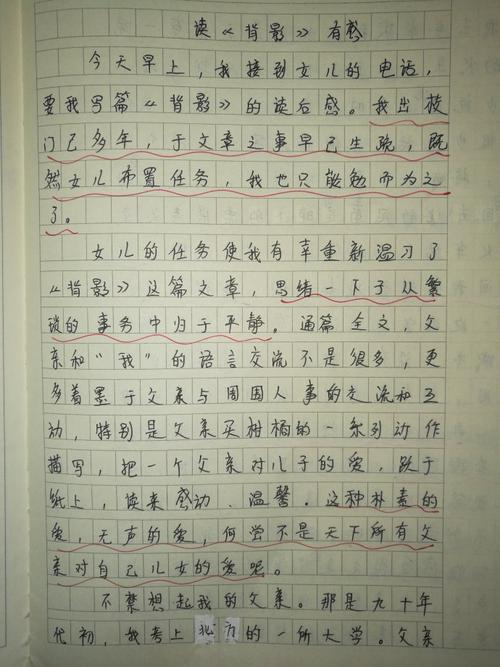 读《背影》有感
今天早上，我接到女儿的电话，
要我写篇《背影》的读后感。我出校
门已多年，于文章之事早已生疏，既
然女儿布置任务，我也只能勉而为之
了。
女儿的任务使我有幸重新温习了
《背影》这篇文章，思绪一下子从繁
琐的事务中归于平静。通篇全文，父
亲和“我”的语言交流不是很多，更
多着墨于父亲与周围人事的交流和互
动，特别是父亲买柑橘的一系列动作
描写，把一个父亲对儿子的爱，跃于
纸上，读来感动、温馨。这种朴素的
爱，无声的爱，何尝不是天下所有父
亲对自己儿女的爱呢。
不禁想起我的父亲。那是九十年
代初，我考上北方的一所大学。父亲